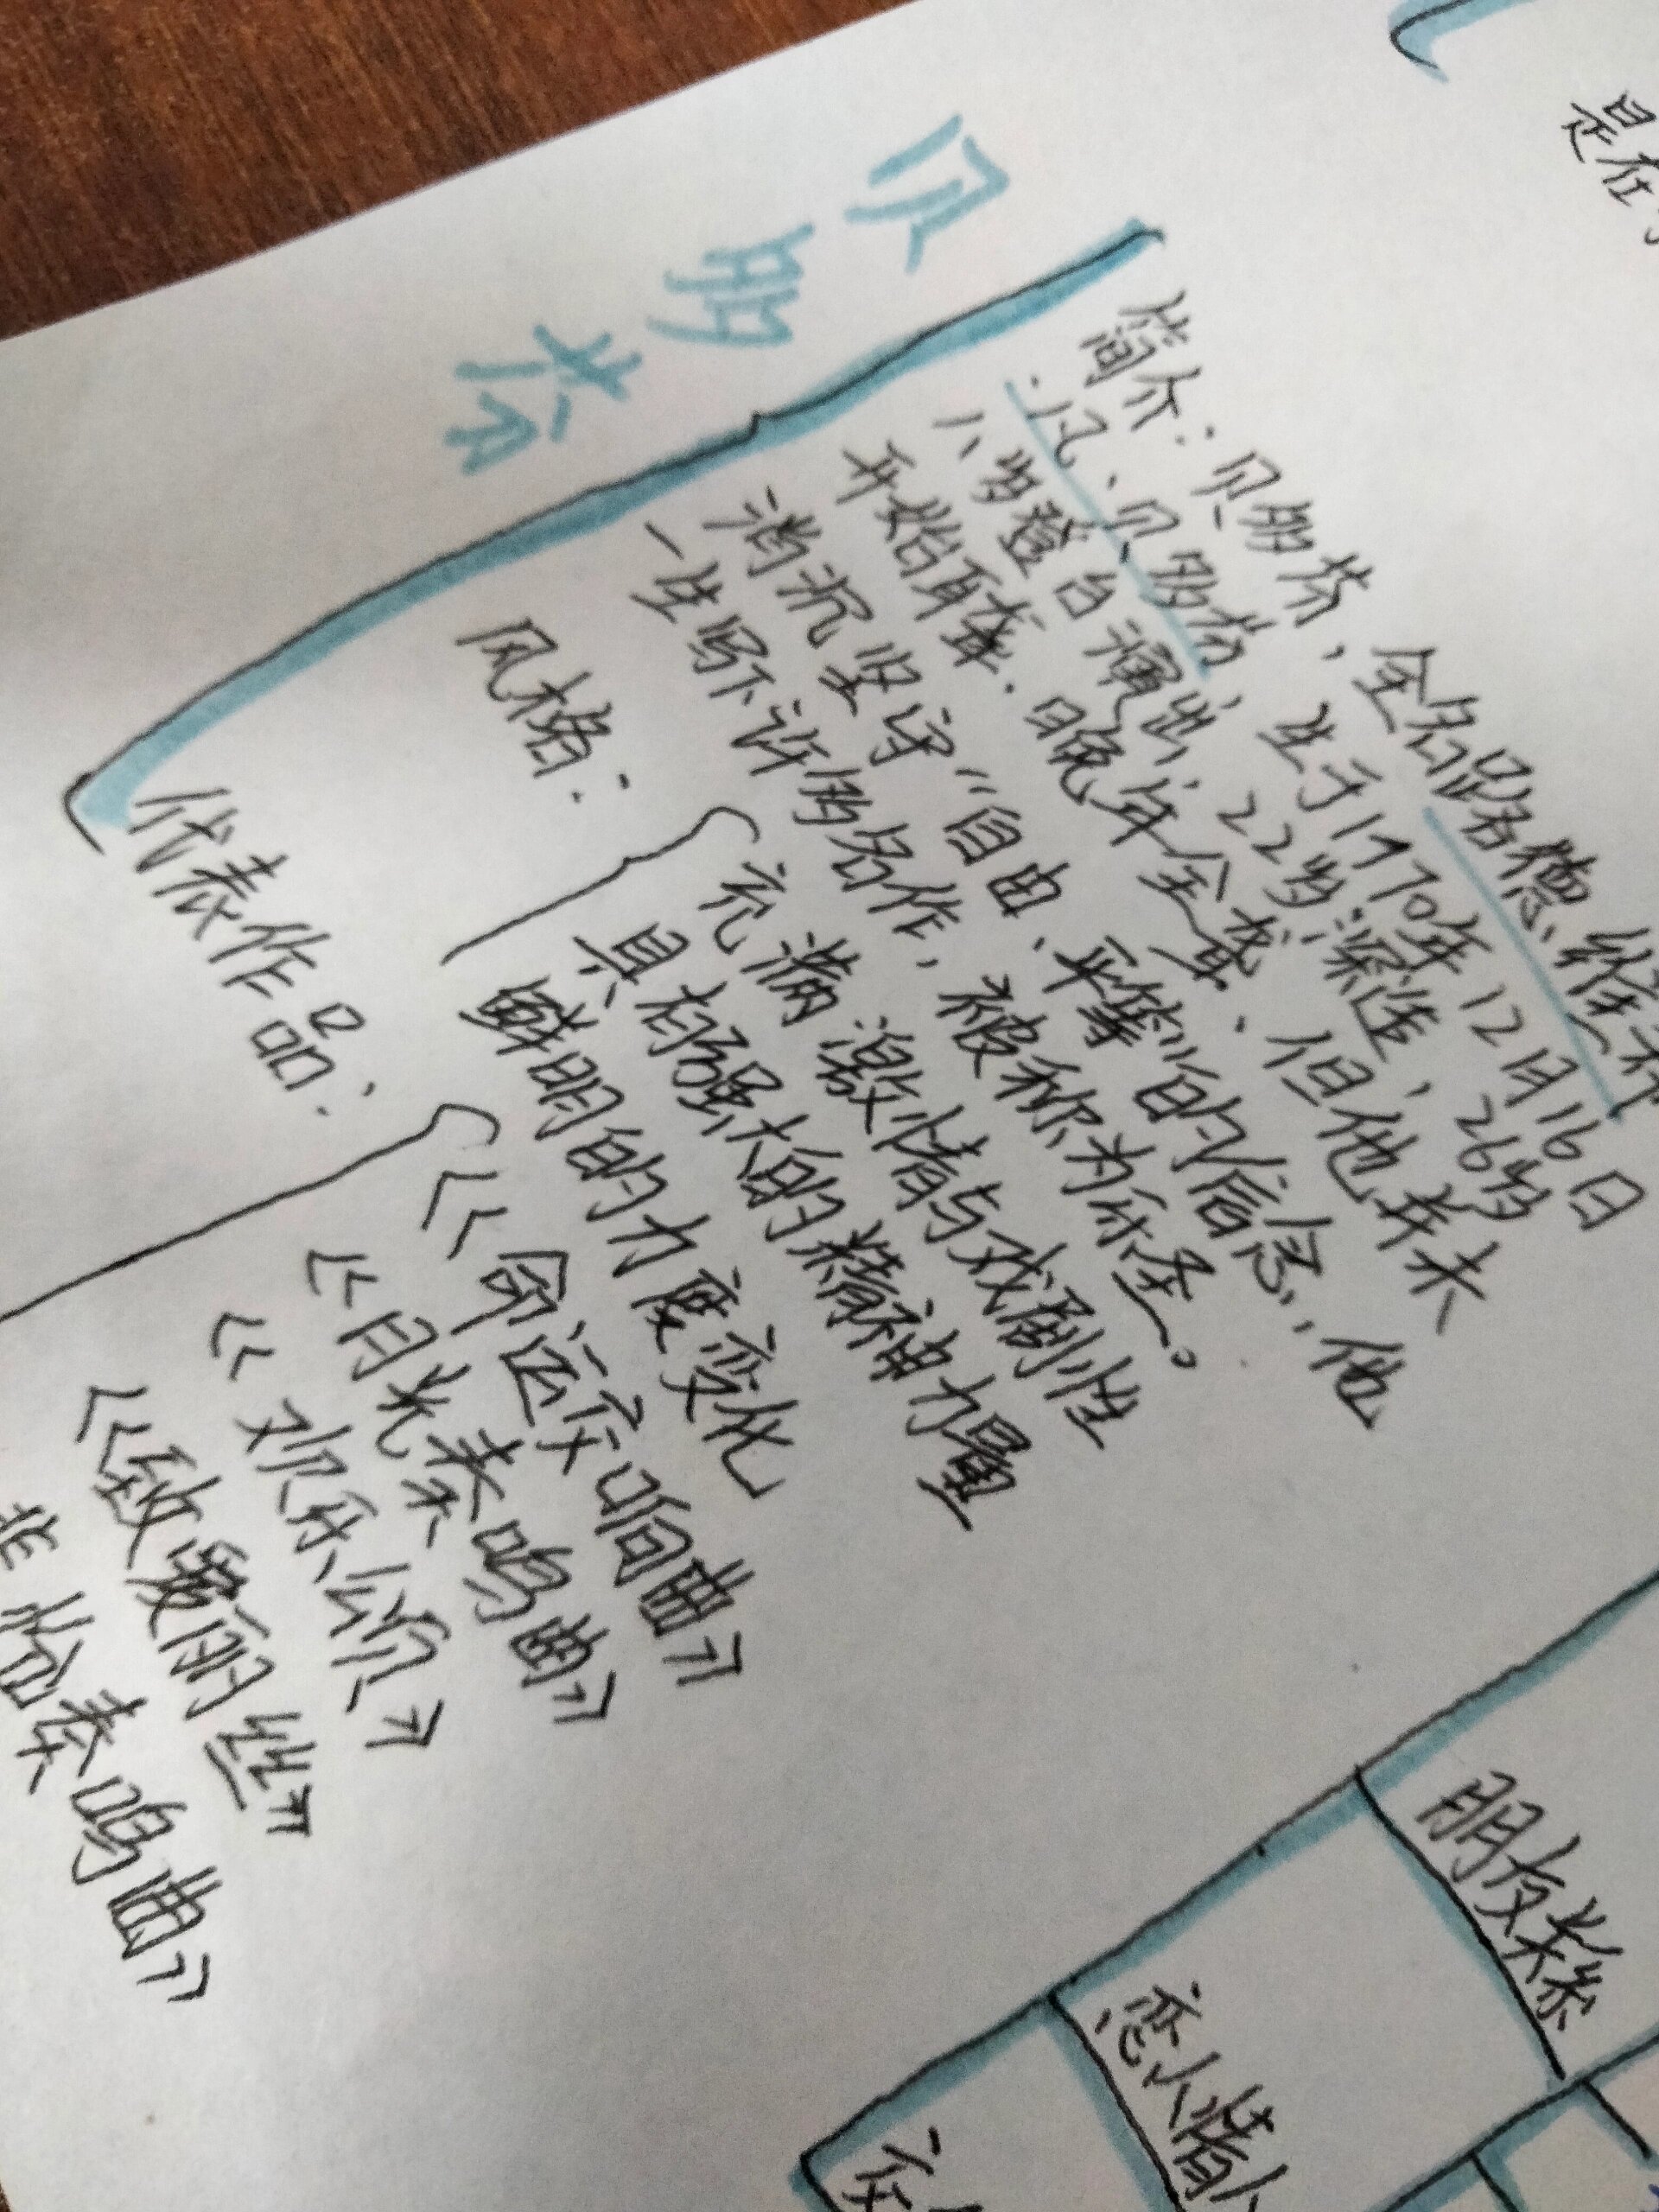 是在
贝多芬
简介：贝多芬，全名路德维希
·凡·贝多芬，生于1770年12月16日
八岁登台演出，22岁深造，26岁
开始耳聋，晚年全聋，但他并未
消沉坚守“自由、平等”的信念，他
一生写下许多名作，被称为乐圣。
风格：
充满激情与戏剧性
具有强大的精神力量
鲜明的力度变化
代表作品：
《命运交响曲》
《月光奏鸣曲》
《欢乐颂》
《致爱丽丝》
悲怆奏鸣曲》
朋友关系
恋人情人